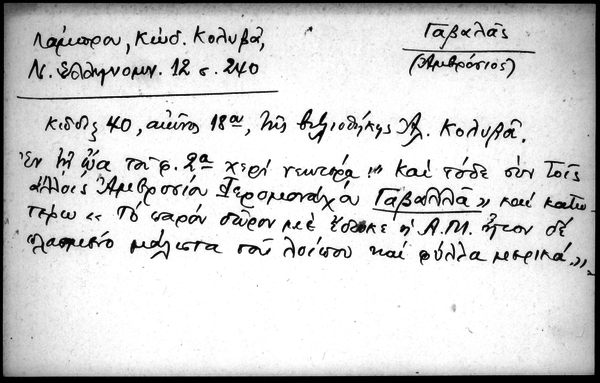 Λάμπρου, Κώδ. Κολυβᾶ,
Ν. Ἑλληνομν. 12 σ. 240
Γαβαλᾶς
(Ἀμβρόσιος)
Κῶδιξ 40, αἰῶνος 18ου, τῆς βιβλιοθήκης Ἀλ. Κολυβᾶ.
Ἐν τῇ ᾤᾳ τοῦ φ. 2α χειρὶ νεωτέρᾳ "Καὶ τόδε σὺν τοῖς
ἄλλοις Ἀμβροσίου Ἱερομονάχου Γαβαλλᾶ» καὶ κατω-
τέρω «Τὸ παρὸν δῶρον μὲ ἔδωκε ὁ Α.Μ. ἦτον δὲ
μάλιστα τοῦ λοίπου καὶ φύλλα μερικά.»